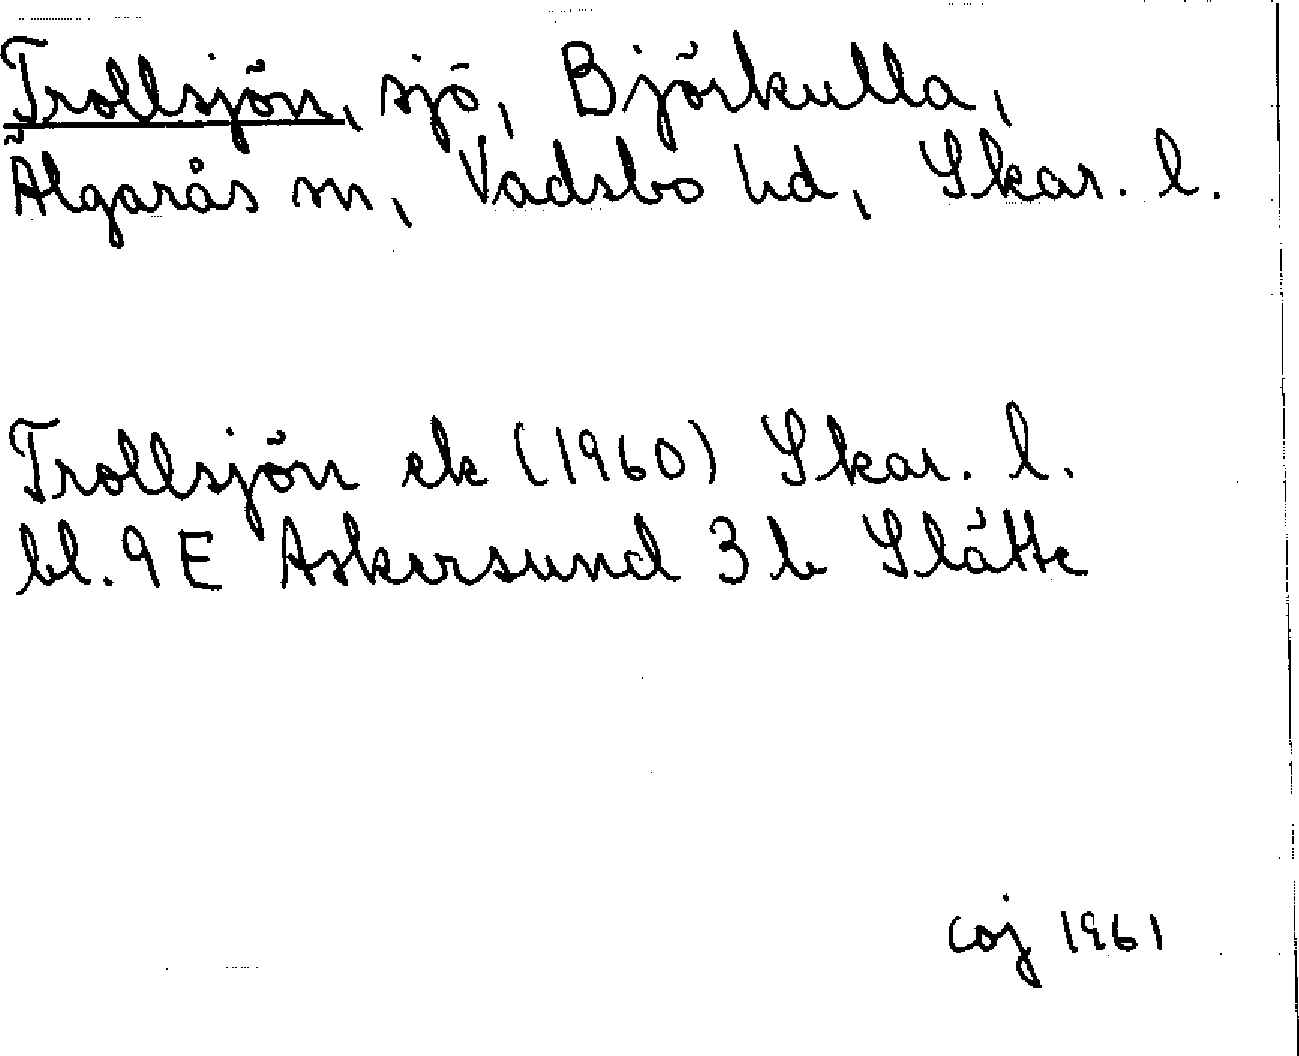 Trollsjön, sjö, Björkulla,
Älgarås sn, Vadsbo hd, Skar. l.
Trollsjön ek (1960) Skar. l.
bl. 9 E Askersund 3 b Slätte
coj 1961